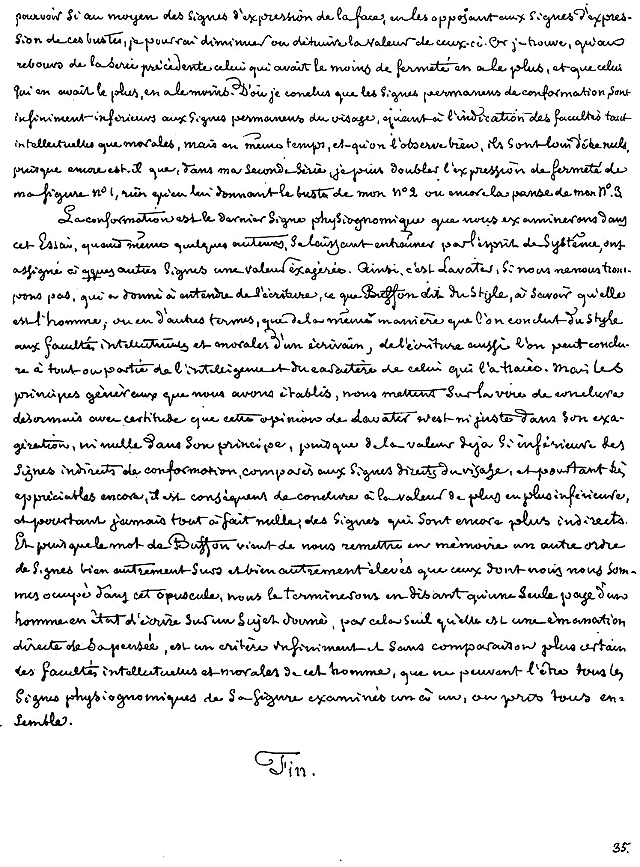 pouvoir si au moyen des signes d'expression de la face, en les opposant aux signes d'expres-
sion de ces bustes, je pourrai diminuer ou détruire la valeur de ceux-ci. Or je trouve, qu'au
rebours de la série précédente celui qui avait le moins de fermeté en a le plus, et que celui
qui en avait le plus, en a le moins. D'où je conclus que les signes permanens de conformation sont
infiniment inférieurs aux signes permanens du visage, quant à l'indication des facultés tant
intellectuelles que morales, mais en même temps, et qu'on l'observe bien, ils sont loin d'être nuls,
puisque encore est-il que, dans ma seconde série, je puis doubler l'expression de fermeté de
ma figure n° 1, rien qu'en lui donnant le buste de mon n° 2 ou encore la panse de mon N° 3.
La conformation est le dernier signe physiognomique que nous examinerons dans
cet Essai, quand même quelques auteurs, se laissant entraîner par l'esprit de système, ont
assigné à qques autres signes une valeur exagérée. Ainsi, c'est Lavater, si nous ne nous trom-
pons pas, qui a donné à entendre de l'écriture, ce que Buffon dit du style, à savoir qu'elle
est l'homme, ou en d'autres termes, que de la même manière que l'on conclut du style
aux facultés intellectuelles et morales d'un écrivain, de l'écriture aussi l'on peut conclu-
re à tout ou partie de l'intelligence et du caractère de celui qui l'a tracée. Mais les
principes généraux que nous avons établis, nous mettent sur la voie de conclure
désormais avec certitude que cette opinion de Lavater n'est ni juste dans son exa-
gération, ni nulle dans son principe, puisque de la valeur déjà si inférieure des
signes indirects de conformation, comparés aux signes directs du visage, et pourtant si
appréciables encore, il est conséquent de conclure à la valeur de plus en plus inférieure,
et pourtant jamais tout à fait nulle, des signes qui sont encore plus indirects.
Et puisque le mot de Buffon vient de nous remettre en mémoire un autre ordre
de signes bien autrement surs et bien autrement élevés que ceux dont nous nous som-
mes occupé dans cet opuscule, nous le terminerons en disant qu'une seule page d'un
homme en état d'écrire sur un sujet donné, par cela seul qu'elle est une émanation
directe de sa pensée, est un critère infiniment et sans comparaison plus certain
des facultés intellectuelles et morales de cet homme, que ne peuvent l'être tous les
signes physiognomiques de sa figure examinés un à un, ou pris tous en-
semble.
Fin.
35.